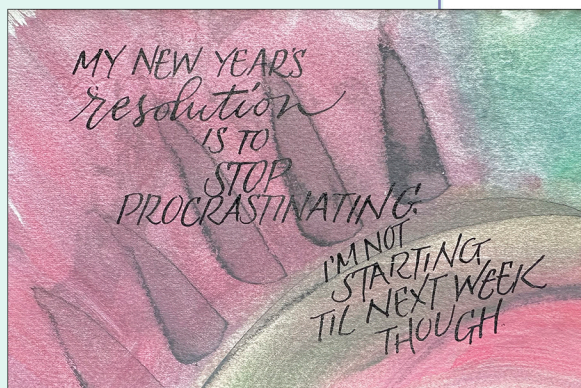 MY NEW YEAR'S
resolution
IS TO
STOP
PROCRASTINATING.
I'M NOT
STARTING
TIL NEXT WEEK
THOUGH.